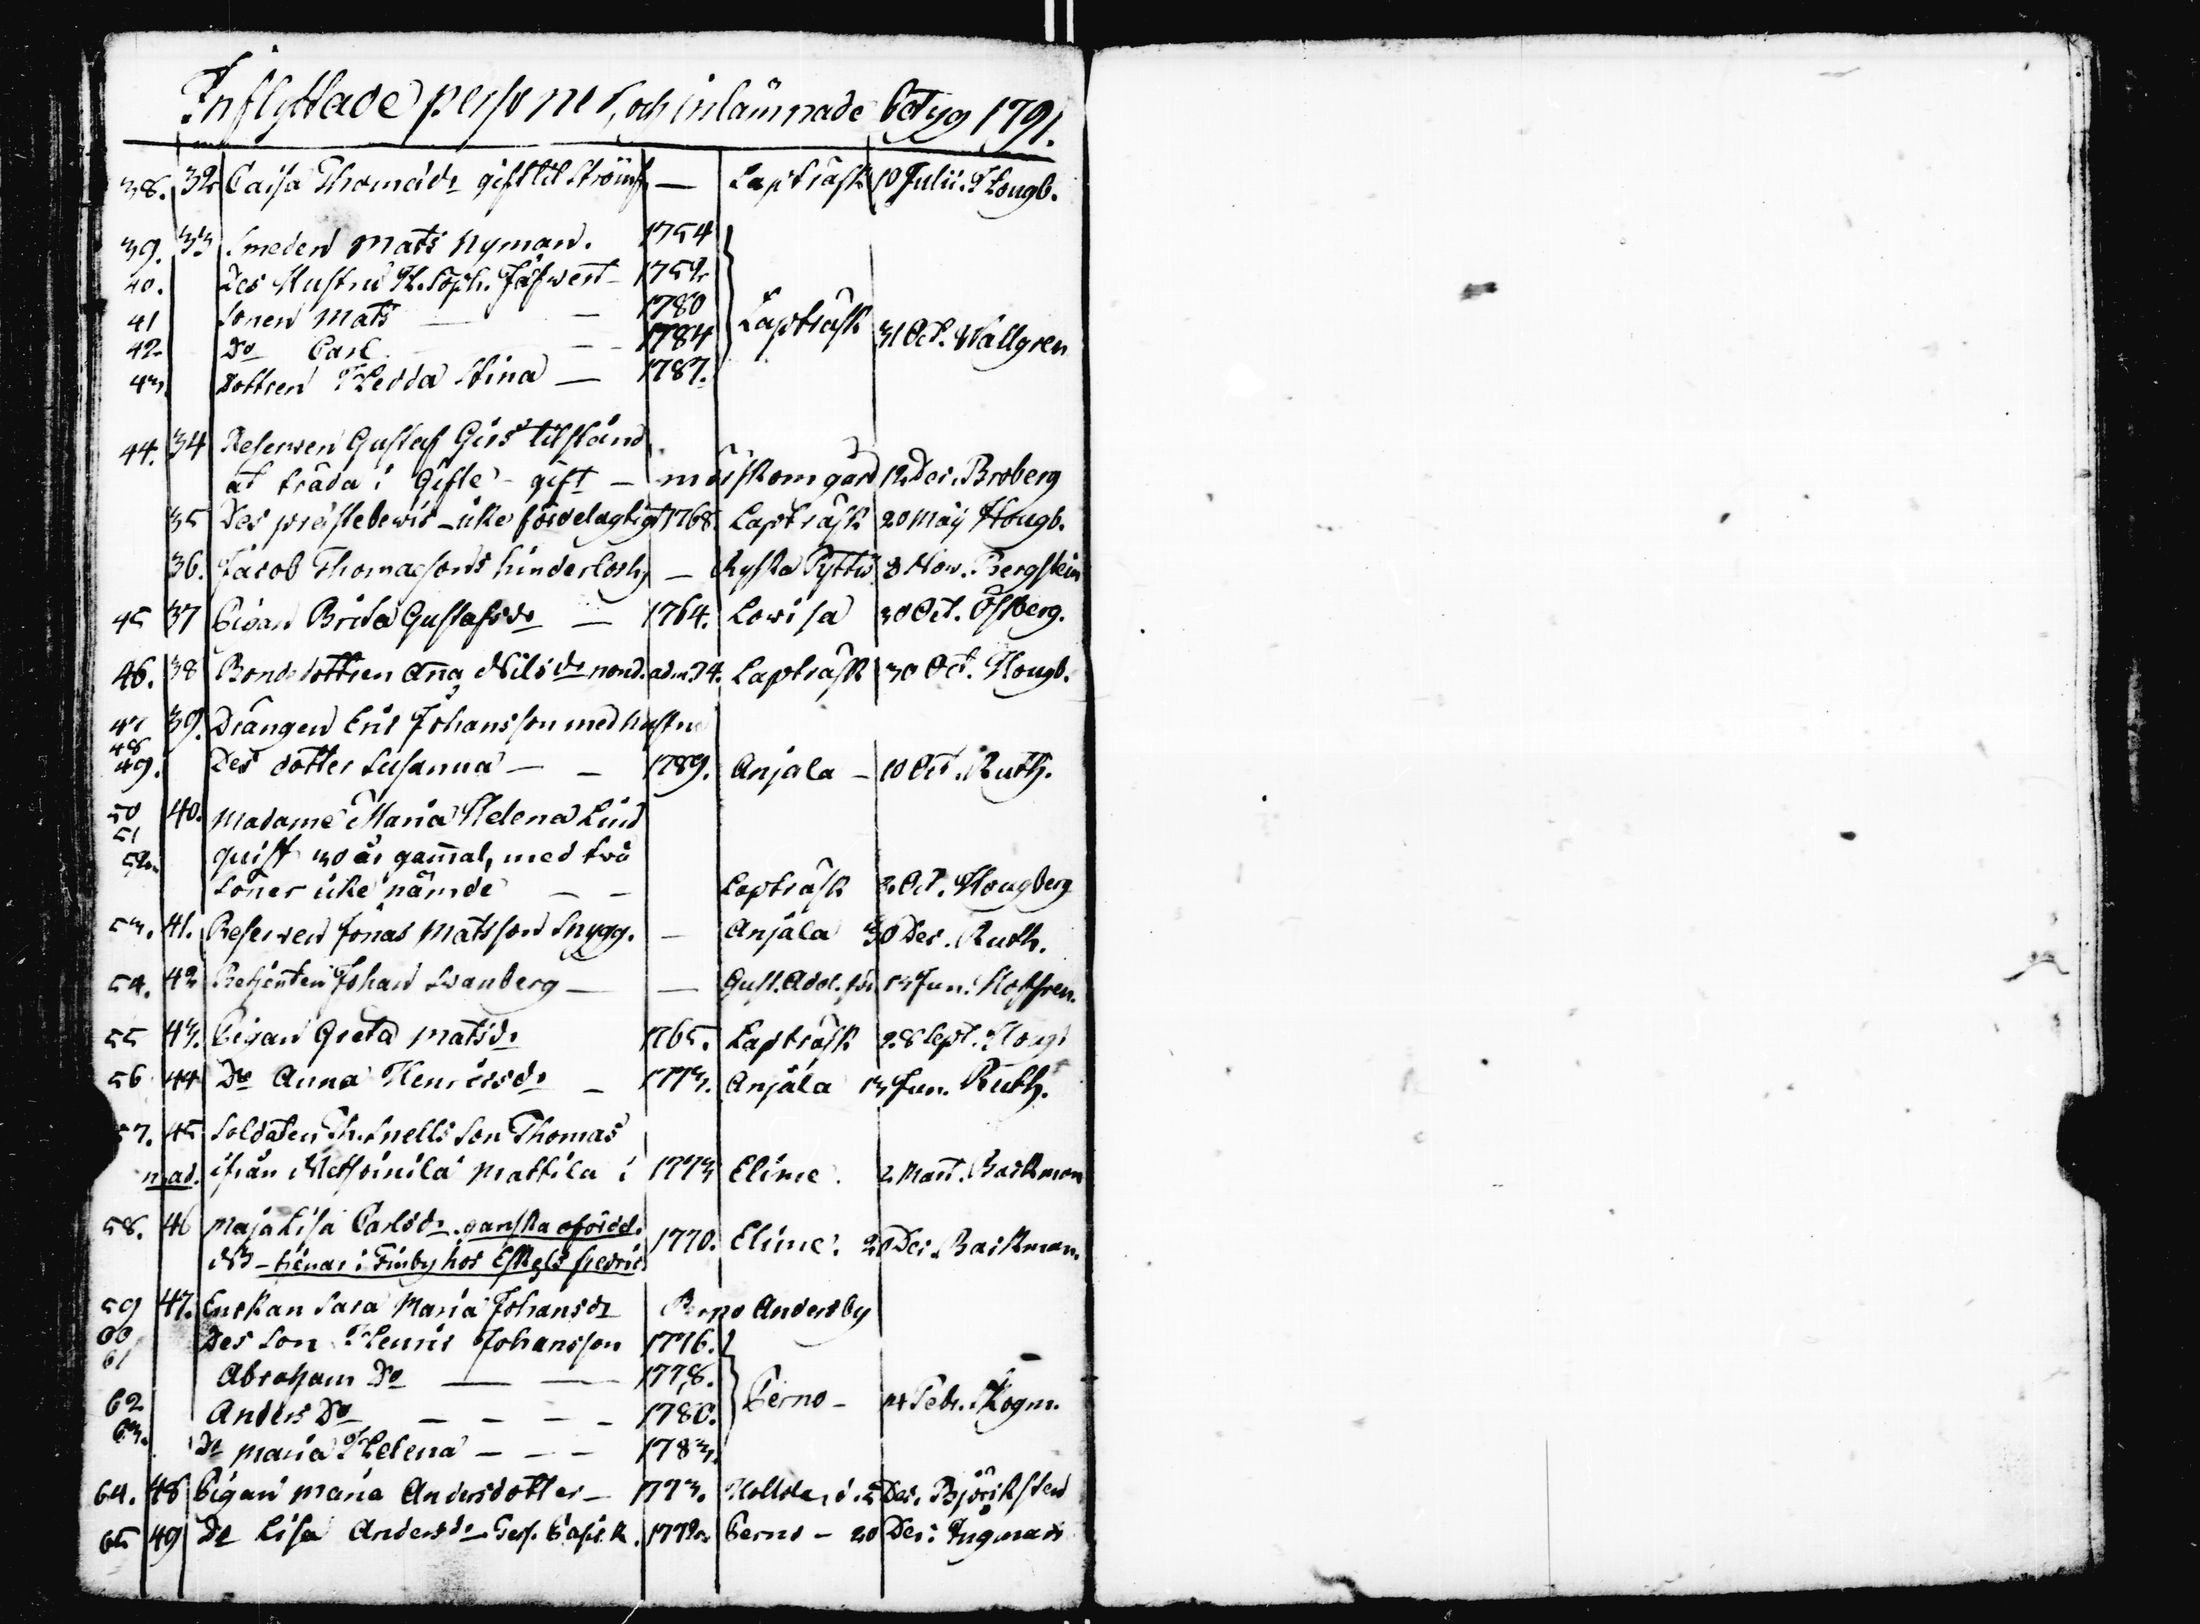 Inflyttade personer, och inlämnade betyg 1791.
38. 32 Caisa Thomædr gift til Strömf — Lapträsk 10 Julii. Hougb.
39. 33 Smeden Mats Nyman. 1754
40. Des Hustru H. Soph. 1752
41 Sonen Mats — — 1780
42 Do Carl — 1784 Lapträsk 31 Oct. Wallgren
43. Dottren Hedda Stina — 1787.
44. 34 Reserven Gustaf Giers tilstånd
at träda i Gifte - gift — Mörskom gård 12 Dec. Broberg
35 Des prästebewis - icke fördelagtigt 1768. Lapträsk 20 Maij Hougb.
36. Jacob Thomassons hinderlösh. — Ryska Pyttis 3 Nov. Bergstein
45 37 Pigan Brita Gustafsdr — 1764. Lovisa 30 Oct. Öfberg.
46. 38 Bondedottren Anna Nilsdr nond. adm 74. Lapträsk 30 Oct. Hougb.
47 39. Drängen Eric Johansson med hustru
48
49. Des dotter Susanna — — 1789. Anjala — 10 Oct. Ruth.
50 40. Madame Maria Helena Lind
51
52. quist 30 år gammal, med två
Söner icke nämde — — Lapträsk 2 Oct. Hougberg
53. 41. Reserven Jonas Matsson Snygg. — Anjala 30 Dec. Ruth.
54. 42 Betjenten Johan Svanberg — — Gust. Adol. 13 Jun. Hoffren.
55 43. Pigan Greta Matsdr 1765. Lapträsk 28 Sept. Hougb
56 44 Do Anna Henricsdr — 1773. Anjala 13 Jun. Ruth.
57. 45 Soldaten Th. Snells Son Thomas
n. ad. ifrån Mattila i 1773 Elime. 2 Mart. Backman
58. 46 Maja Lisa Carlsdr. ganska oförd.
NB - tienar i Finby hos Eskels Fredric 1770. Elime. 20 Dec. Backman.
59 47. Enckan Sara Maria Johansdr Perno Andersby
60 Des Son Henric Johansson 1776.
61 Abraham Do — — 1778.
62 Anders Do — — — — 1780. Perno — 14 Febr. Skogm.
63. Dr Maria Helena — — — 1783.
64. 48 Pigan Maria Andersdotter — 1773. Hollola, d. 5 Dec. Björksten
65 49 Do Lisa Andersdr 1772. Perno — 20 Dec. Ingman